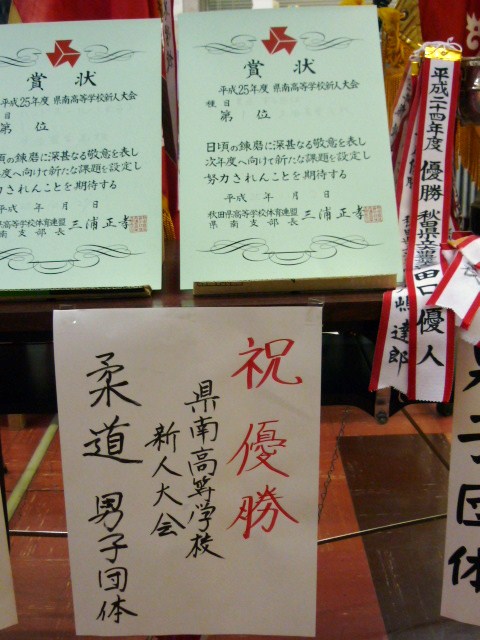 賞状
平成25年度 県南高等学校新人大会
目
第 位
頃の錬磨に深甚なる敬意を表し
年度へ向けて新たな課題を設定し
力されんことを期待する
平成 年 月 日
県高等学校体育連盟
南支部長 三浦正孝
賞状
平成25年度 県南高等学校新人大会
種目
第 位
日頃の錬磨に深甚なる敬意を表し
次年度へ向けて新たな課題を設定し
努力されんことを期待する
平成 年 月 日
秋田県高等学校体育連盟
県南支部長 三浦正孝
平成二十四年度 優勝
田口優人
嶋達郎
祝優勝
県南高等学校
新人大会
柔道 男子団体
子団体